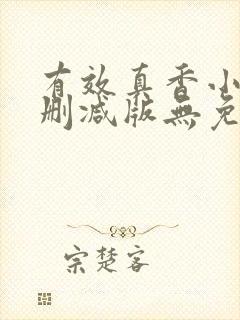 有效真香小
删减版無免
宗楚客